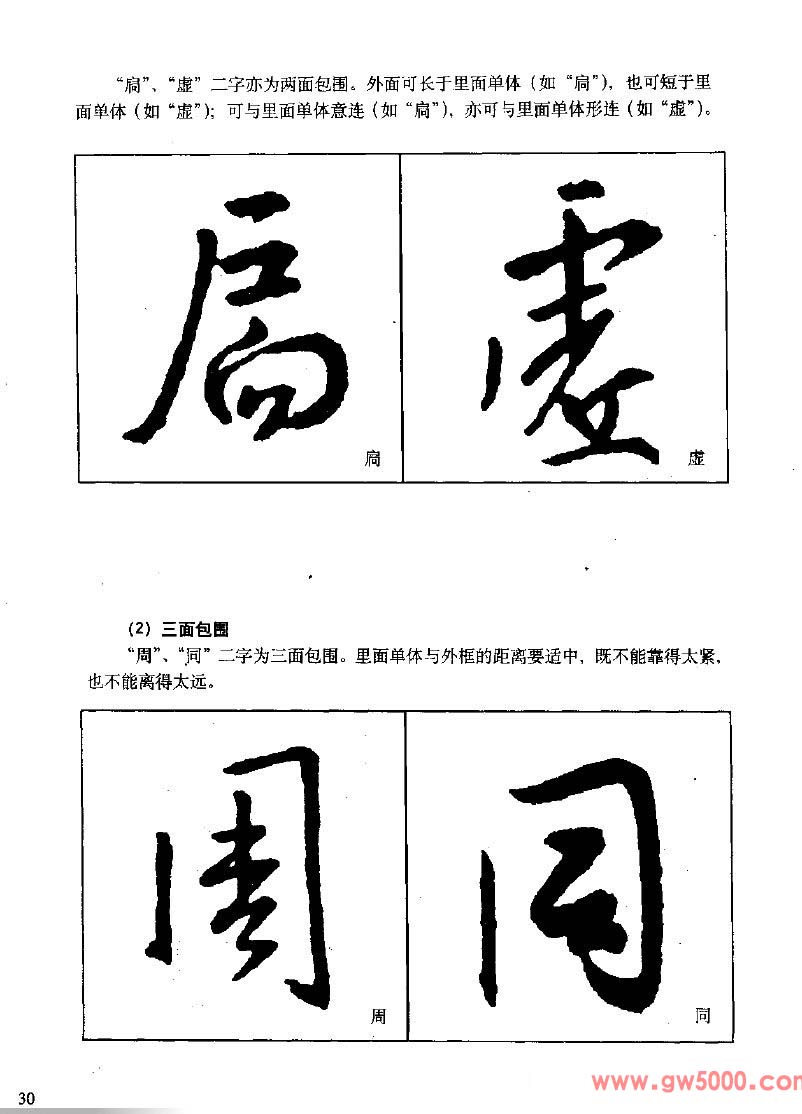 “扃”、“虚”二字亦为两面包围。外面可长于里面单体（如“扃”），也可短于里
面单体（如“虚”）；可与里面单体意连（如“扃”），亦可与里面单体形连（如“虚”）。
扃 虚
扃 虚
（2）三面包围
“周”、“同”二字为三面包围。里面单体与外框的距离要适中，既不能靠得太紧，
也不能离得太远。
周 同
周 同
www.gw5000.com
30